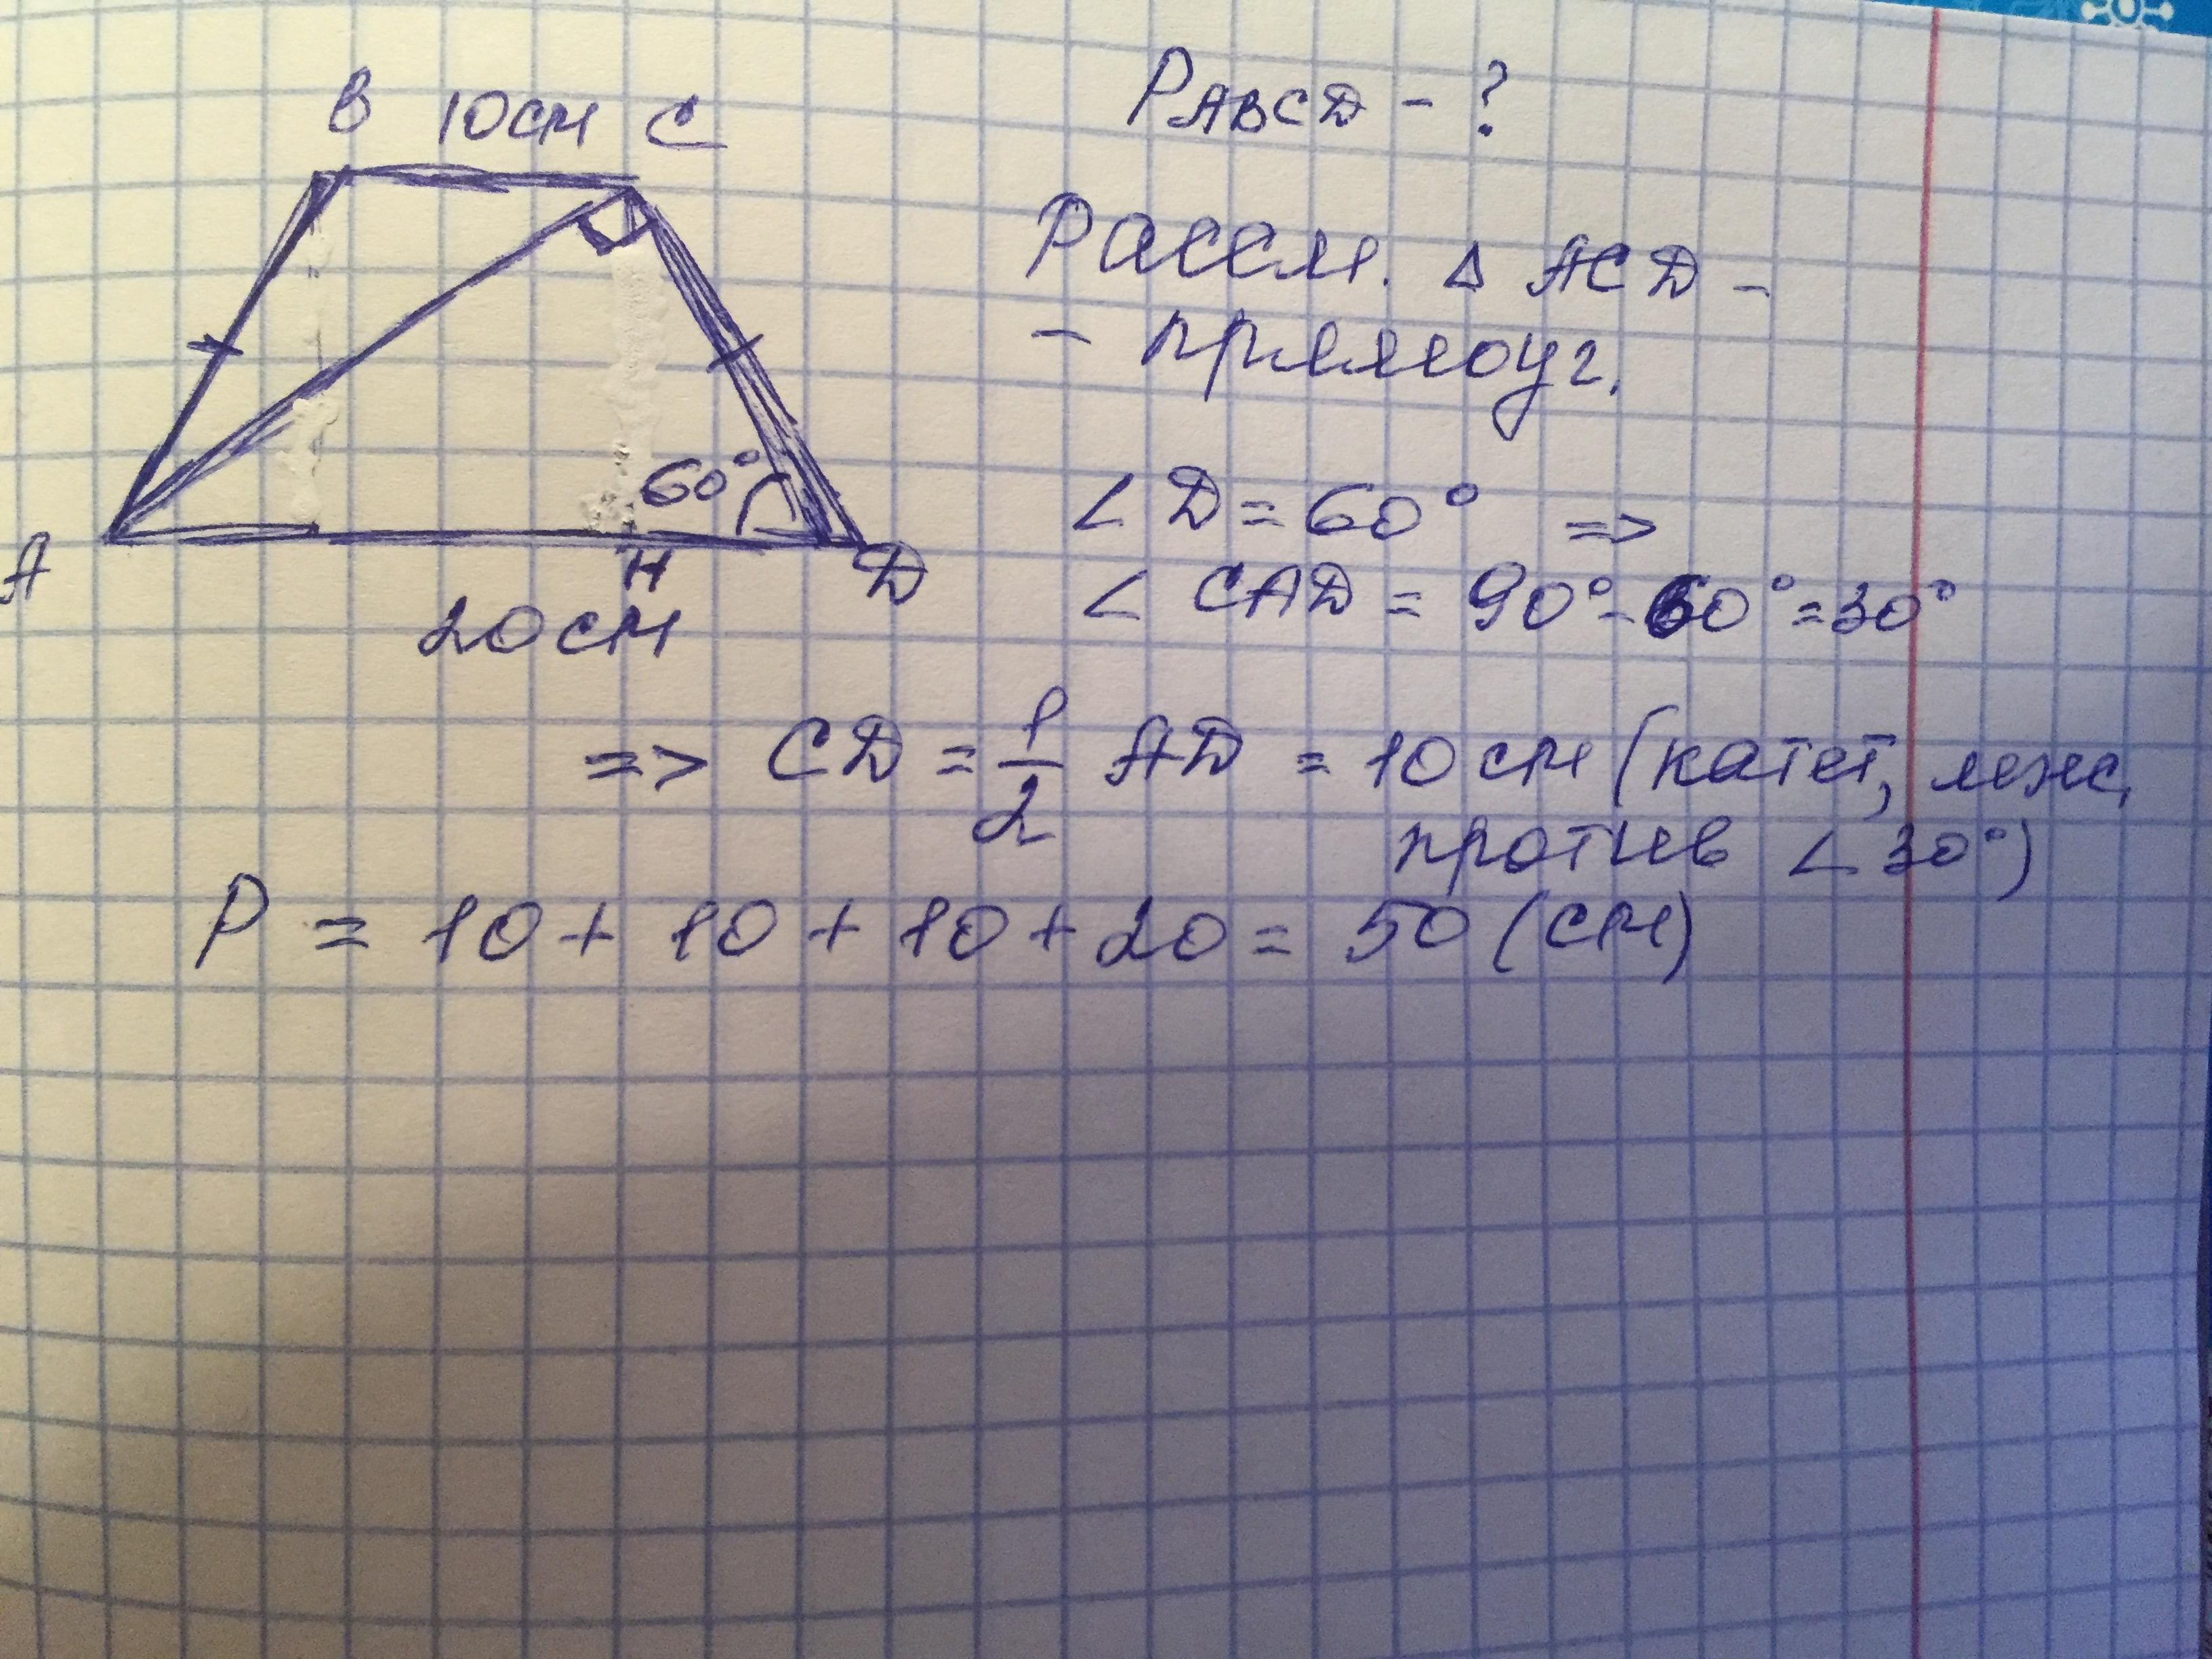 B 10 см C
60°
A H D
20 см
PABCD - ?
Рассм. Δ ACD -
- прямоуг.
∠ D = 60° =>
∠ CAD = 90° - 60° = 30°
=> CD = 1/2 AD = 10 см (катет, леж.
против ∠ 30°)
P = 10 + 10 + 10 + 20 = 50 (см)